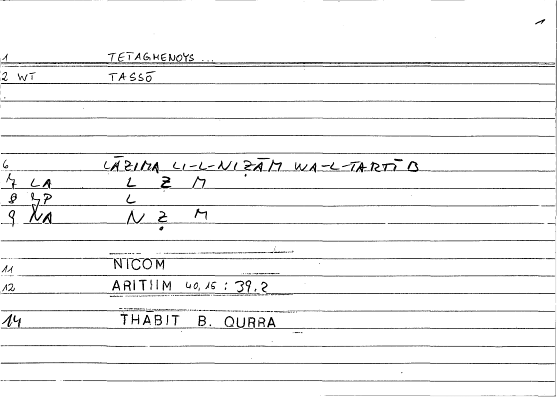 1
1 TETAGMENOYS ...
2 WT TASSŌ
6 LĀZIMA LI-L-NIẒĀM WA-L-TARTĪB
7 LA L Z M
8 MP L
9 NA N Ẓ M
11 NICOM
12 ARITIIM 40,15 : 39.2
14 THABIT B. QURRA